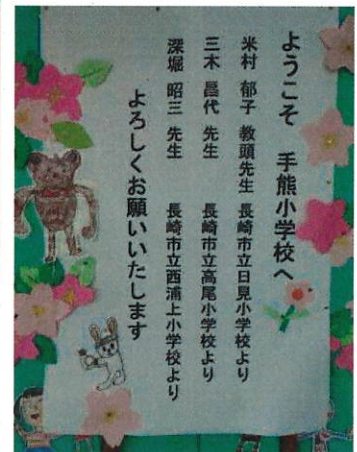 ようこそ 手熊小学校へ
米村 郁子 教頭先生 長崎市立日見小学校より
三木 昌代 先生 長崎市立高尾小学校より
深堀 昭三 先生 長崎市立西浦上小学校より
よろしくお願いいたします